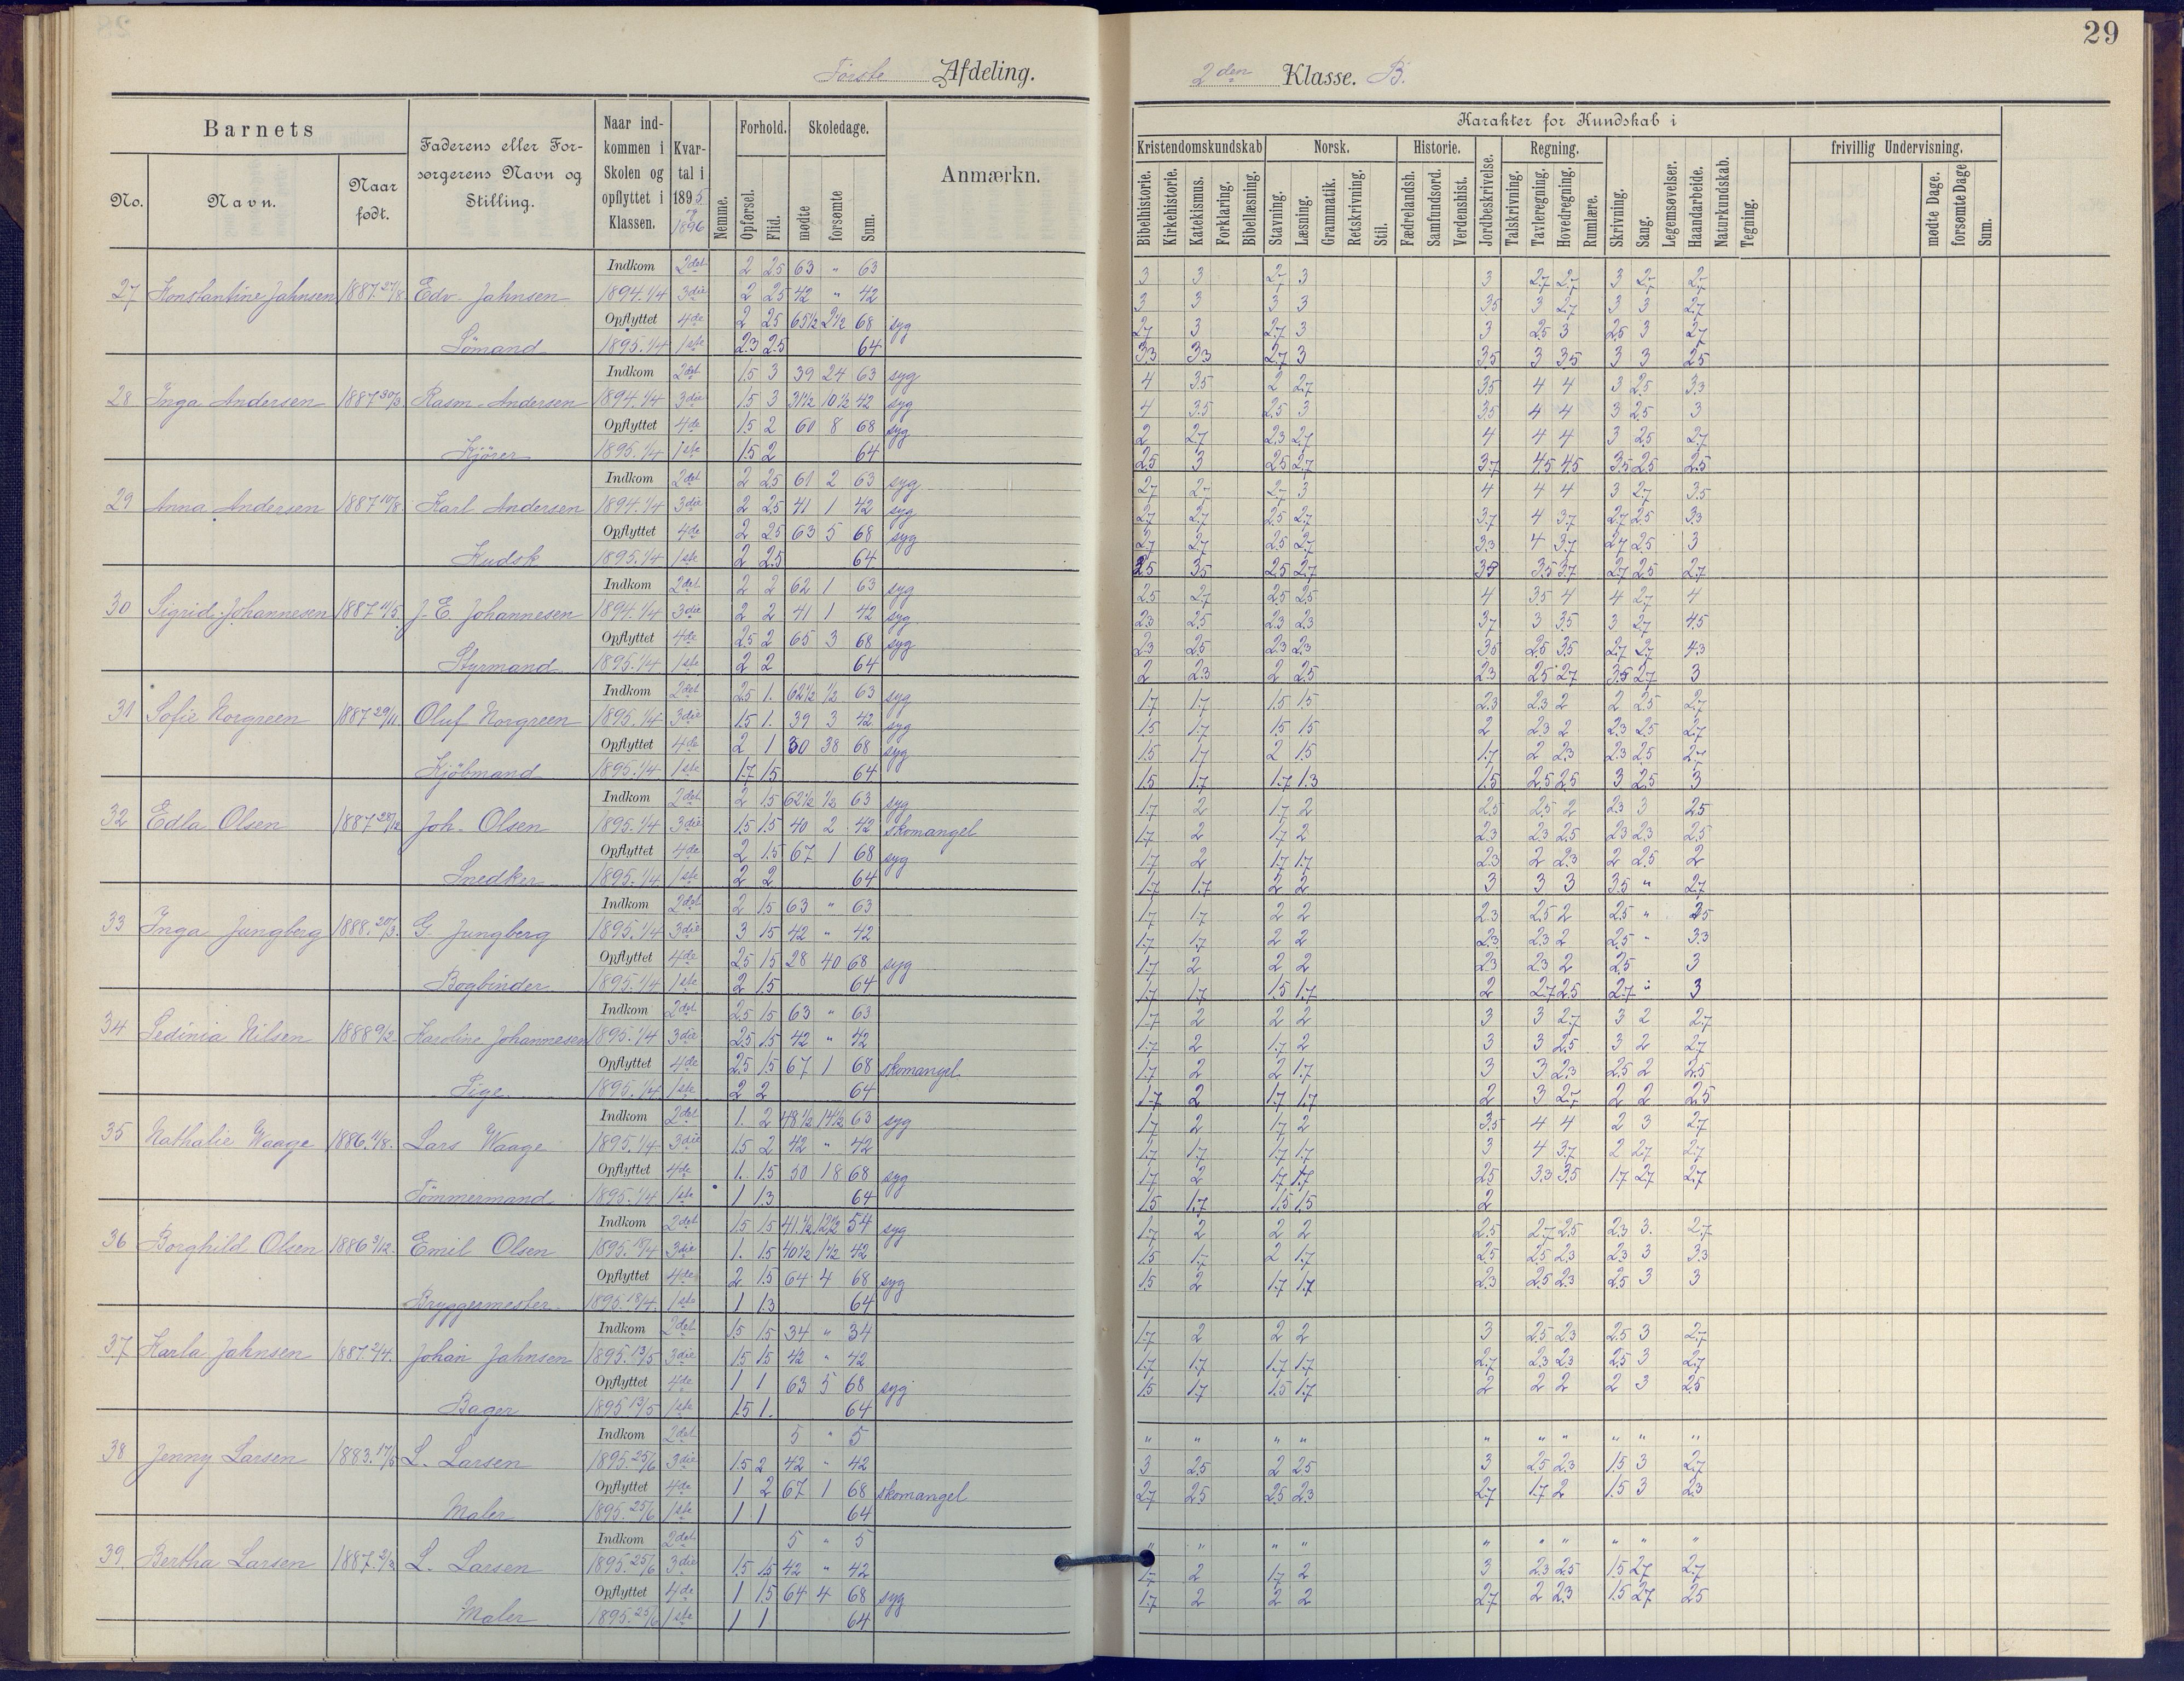 29
Første Afdeling.
2den Klasse. B.
Barnets
No.
Navn.
Naar født.
Faderens eller Forsørgerens Navn og Stilling.
Naar indkommen i Skolen og opflyttet i Klassen.
Kvartal i 1895 1896
Nemme.
Forhold.
Opførsel.
Flid.
Skoledage.
mødte
forsømte
Sum.
Anmærkn.
Karakter for Kundskab i
Kristendomskundskab
Norsk.
Historie.
Regning.
frivillig Undervisning.
Bibelhistorie.
Kirkehistorie.
Katekismus.
Forklaring.
Bibellæsning.
Stavning.
Læsning.
Grammatik.
Retskrivning.
Stil.
Fædrelandsh.
Samfundsord.
Verdenshist.
Jordbeskrivelse.
Talskrivning.
Tavleregning.
Hovedregning.
Rumlære.
Skrivning.
Sang.
Legemsøvelser.
Haandarbeide.
Naturkundskab.
Tegning.
mødte Dage.
forsømte Dage
Sum.
Indkom 2det 2 2.5 63 " 63
27 Konstantine Jahnsen 1887 27/8 Edv. Jahnsen 1894.1/4 3die 2 2.5 42 " 42
Opflyttet 4de 2 2.5 65½ 2½ 68 syg
Sömand 1895.1/4 1ste 2.3 2.5 64
Indkom 2det 1.5 3 39 24 63 syg
28 Inga Andersen 1887 30/3 Rasm. Andersen 1894.1/4 3die 1.5 3 31½ 10½ 42 syg
Opflyttet 4de 1.5 2 60 8 68 syg
Kjörer 1895.1/4 1ste 1.5 2 64
Indkom 2det 2 2.5 61 2 63 syg
29 Anna Andersen 1887 10/8 Karl Andersen 1894.1/4 3die 2 2.5 41 1 42 syg
Opflyttet 4de 2 2.5 63 5 68 syg
Kudsk 1895.1/4 1ste 2 2.5 64
Indkom 2det 2 2 62 1 63 syg
30 Sigrid Johannesen 1887 11/5 J. E. Johannesen 1894.1/4 3die 2 2 41 1 42 syg
Opflyttet 4de 2.5 2 65 3 68 syg
Styrmand 1895.1/4 1ste 2 2 64
Indkom 2det 2.5 1. 62½ ½ 63 syg
31 Sofie Norgreen 1887 29/11 Oluf Norgreen 1895.1/4 3die 1.5 1. 39 3 42 syg
Opflyttet 4de 2 1 30 38 68 syg
Kjöbmand 1895.1/4 1ste 1.7 1.5 64
Indkom 2det 2 1.5 62½ ½ 63 syg
32 Edla Olsen 1887 28/12 Joh. Olsen 1895.1/4 3die 1.5 1.5 40 2 42 skomangel
Opflyttet 4de 2 1.5 67 1 68 syg
Snedker 1895.1/4 1ste 2 2 64
Indkom 2det 2 1.5 63 " 63
33 Inga Jungberg 1888. 20/3. G. Jungberg 1895.1/4 3die 3 1.5 42 " 42
Opflyttet 4de 2.5 1.5 28 40 68 syg
Bogbinder 1895.1/4 1ste 2 1.5 64
Indkom 2det 2.5 1.5 63 " 63
34 Pedinia Nilsen 1888 9/2. Karoline Johannesen 1895.1/4 3die 2.5 1.5 42 " 42
Opflyttet 4de 2.5 1.5 67 1 68 skomangel
Pige 1895.1/4 1ste 2 2 64
Indkom 2det 1. 2 48½ 14½ 63 syg
35 Nathalie Waage 1886. /8. Lars Waage 1895.1/4 3die 1.5 2 42 " 42
Opflyttet 4de 1. 1.5 50 18 68 syg
Tömmermand 1895.1/4 1ste 1 1.3 64
Indkom 2det 1.5 1.5 41½ 12½ 54 syg
36 Borghild Olsen 1886 3/12. Emil Olsen 1895. 18/4 3die 1. 1.5 40½ 1½ 42
Opflyttet 4de 2 1.5 64 4 68 syg
Bryggermester 1895. 18/4. 1ste 1 1.3 64
Indkom 2det 1.5 1.5 34 " 34
37 Karla Jahnsen 1887. 2/4. Johan Jahnsen 1895. 13/5 3die 1.5 1.5 42 " 42
Opflyttet 4de 1 1 63 5 68 syg
Bager 1895 13/5 1ste 1.5 1. 64
Indkom 2det 5 " 5
38 Jenny Larsen 1883. 17/6 L. Larsen 1895. 25/6 3die 1.5 2 42 " 42
Opflyttet 4de 1 2 67 1 68 skomangel
Maler 1895. 25/6 1ste 1 1 64
Indkom 2det 5 " 5
39 Bertha Larsen 1887. L. Larsen 1895. 25/6 3die 1.5 1.5 42 " 42
Opflyttet 4de 1 1.5 64 4 68 syg
Maler 1895. 25/6 1ste 1 1 64
3 3 2.7 3 3 2.7 2.7 3 2.7 2.7
3 3 3 3 3.5 3 2.7 3 3 2.7
2.7 3 2.7 3 3 2.5 3 2.5 3 2.7
3.3 3.3 2.7 3 3.5 3 3.5 3 3 2.5
4 3.5 2 2.7 3.5 4 4 3 2.5 3.3
4 3.5 2.5 3 3.5 4 4 3 2.5 3
2 2.7 2.3 2.7 4 4 4 3 2.5 2.7
2.5 3 2.5 2.7 3.7 4.5 4.5 3.5 2.5 2.5
2.7 2.7 2.7 3 4 4 4 3 2.7 3.5
2.7 2.7 2.5 2.7 3.7 4 3.7 2.7 2.5 3.3
2.7 2.7 2.5 2.7 3.3 4 3.7 2.7 2.5 3
2.5 3.5 2.5 2.7 3.5 3.5 3.7 2.7 2.5 2.7
2.5 2.7 2.5 2.5 4 3.5 4 4 2.7 4
2.3 2.5 2.3 2.3 3.7 3 3.5 3 2.7 4.5
2.3 2.5 2.3 2.3 3.5 2.5 3.5 2.7 2.7 4.3
2 2.3 2 2.5 2.3 2.5 2.7 3.5 2.7 3
1.7 1.7 1.5 1.5 2.3 2.3 2 2 2.5 2.7
1.5 1.7 1.5 1.5 2 2.3 2 2.3 2.5 2.7
1.5 1.7 2 1.5 1.7 2 2.3 2.3 2.5 2.7
1.5 1.7 1.7 1.3 1.5 2.5 2.5 3 2.5 3
1.7 2 1.7 2 2.5 2.5 2 2.3 3 2.5
1.7 2 1.7 2 2.3 2.3 2.5 2.3 2.3 2.5
1.7 2 1.7 1.7 2.3 2 2.3 2 2.5 2
1.7 1.7 2 2 3 3 3 3.5 " 2.7
1.7 1.7 2 2 2.3 2.5 2 2.5 " 3.5
1.7 1.7 2 2 2.3 2.3 2 2.5 " 3.3
1.7 2 2 2 2.3 2.3 2 2.5 3
1.7 1.7 1.5 1.7 2 2.7 2.5 2.7 " 3
1.7 2 2 2 3 3 2.7 3 2 2.7
1.7 2 1.7 2 3 3 2.5 3 2 2.7
1.7 2 2 1.7 3 3 2.3 2.5 2 2.5
1.7 2 1.7 1.7 2 3 2.7 2 2 2.5
1.7 2 1.7 2 3.5 4 4 2 3 2.7
1.7 1.7 1.7 1.7 3 4 3.7 2 2.7 2.7
1.7 2 1.7 1.7 2.5 3.3 3.5 1.7 2.7 2.7
1.5 1.7 1.5 1.5 2
1.7 2 2 2 2.5 2.7 2.5 2.3 3. 2.7
1.5 1.7 2 1.7 2.5 2.5 2.3 2.3 3 3.3
1.5 2 1.7 1.7 2.3 2.5 2.3 2.5 3 3
1.7 2 2 2 3 2.5 2.3 2.5 3 2.7
1.7 1.7 1.7 1.7 2.7 2.3 2.3 2.5 3 2.7
1.5 1.7 1.5 1.7 2 2 2 2 3 2.5
" " " " " " " " " "
3 2.5 2 2.5 3 2.5 2.3 1.5 3 2.7
2.7 2.5 2.5 2.3 2.7 1.7 2 1.5 3 2.3
" " " " " " " " " "
1.7 2 1.7 2 3 2.3 2.5 1.5 2.7 2.7
1.7 2 2 2 2.7 2 2.3 1.5 2.7 2.5